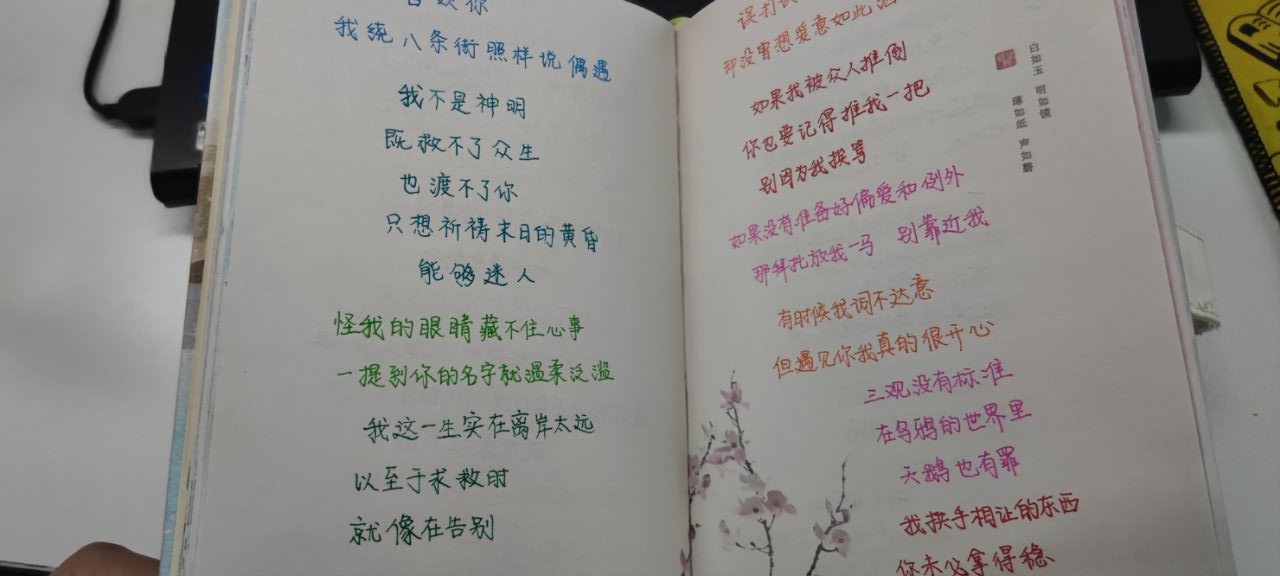 喜欢你
我绕八条街照样说偶遇
我不是神明
既救不了众生
也渡不了你
只想祈祷末日的黄昏
能够迷人
怪我的眼睛藏不住心事
一提到你的名字就温柔泛滥
我这一生实在离岸太远
以至于求救时
就像在告别
误打
却没曾想爱意如此
如果我被众人推倒
你也要记得推我一把
别因为我挨骂
如果没有准备好偏爱和例外
那拜托放我一马 别靠近我
有时候我词不达意
但遇见你我真的很开心
三观没有标准
在乌鸦的世界里
天鹅也有罪
我拱手相让的东西
你未必拿得稳
白如玉 明如镜
薄如纸 声如磬